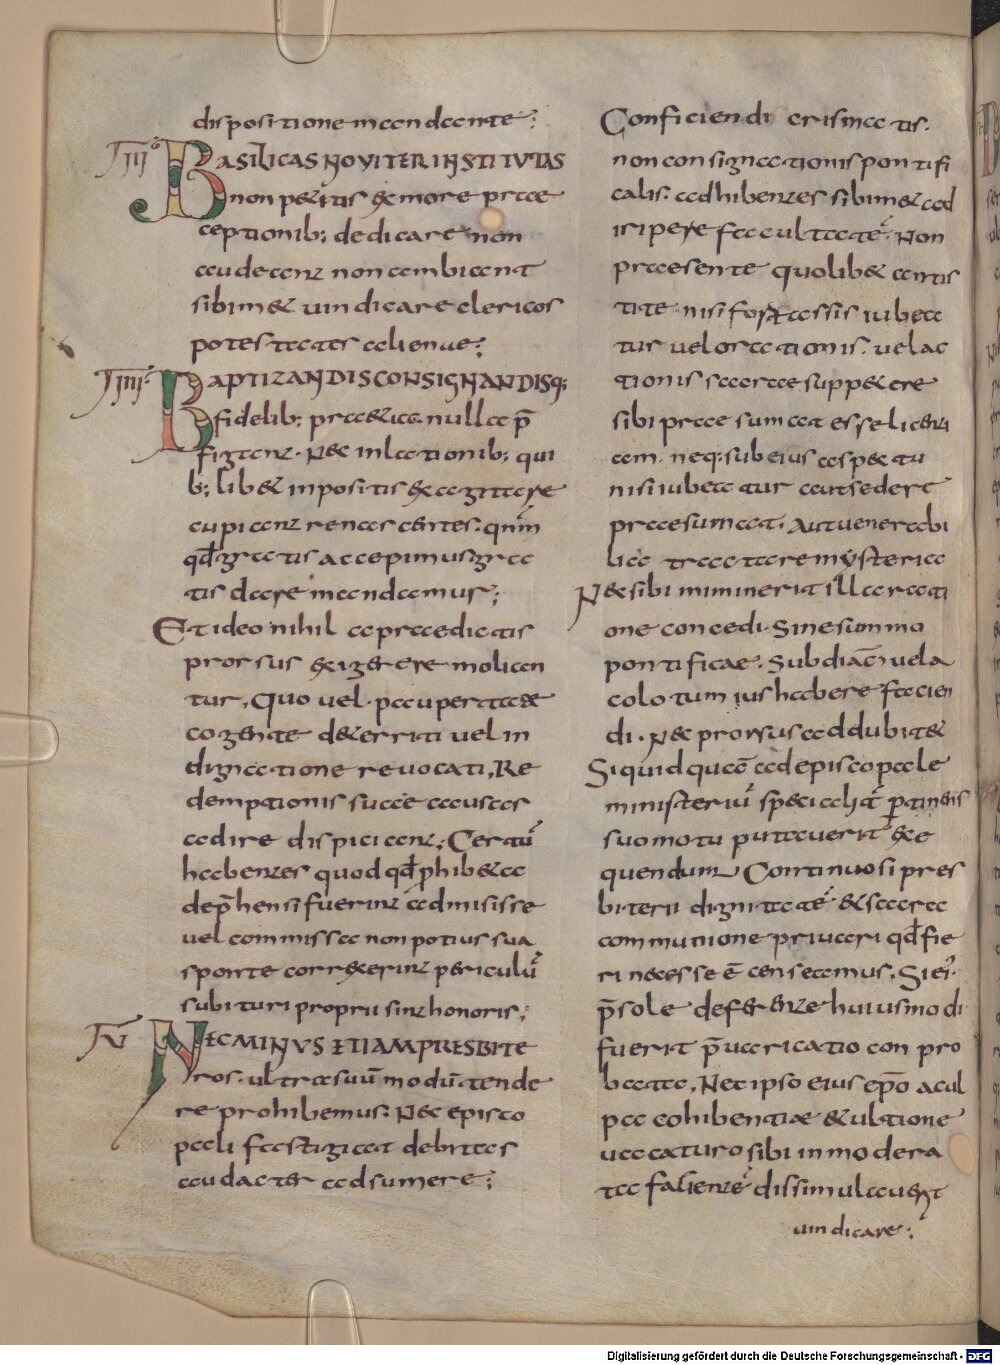 dispositione mandante;
III BASILICAS NOVITER INSTITUTAS
non petitis ex more prae
ceptionib; dedicare non
audeant non ambiant
sibimet uindicare clericos
potestatis alienae;
IIII BAPTIZANDIS CONSIGNANDISQ;
fidelib; praetia nulla p̄
figant. Nec inlationib; qui
b; libet inpositis exagitare
cupiant renascentes. qnm̄
qđ gratis accepimus gra
tis dare mandamur;
Et ideo nihil a praedictis
prorsus exigere molian
tur, Quo uel paupertate
cogente deterriti uel in
dignatione reuocati, Re
demptionis suae causas
adire dispiciant; Certū
habentes quod qđ phibeta
dep̄hensi fuerint admisisse
uel commissa non potius sua
sponte correxerint periculū
subituri proprii sint honoris;
V NEC MINUS ETIAM PRESBITE
ros. ultra suū modū tende
re prohibemus. Nec episco
pali fastigiat debitas
audacter adsumere;
Conficiendi crismatis.
non consignationis pontifi
calis. adhibentes sibimet ad
iripere facultatē. Non
praesente quolibet antis
tite nisi fortassis iubea
tur uel orationis. uel ac
tionis sacrae suppetere
sibi praesumat esse licenti
am. neq; sub eius aspectu
nisi iubeatur aut sedere
praesumat. Aut uenerabi
lia tractare mysteria
Nec sibi miminerit illa rati
one concedi. Sine summo
pontificae. Subdiac̄ uel a
colotum ius habere facien
di. Nec prorsus addubitet
Siquid quā ad episcopale
ministeriū specialit̄ ptinens
suo motu putauerit exe
quendum Continuo si pres
biterii dignitatē et sacra
communione priuari qđ fie
ri necesse ē censeamus. Si ei'
p̄sole deferente huiusmodi
fuerit p̄uaricatio con pro
bata. Nec ipso eius ep̄o a cul
pa cohibentiae et ultione
uacaturo si bi inmodera
ta facientē dissimulauerit
uindicare;
Digitalisierung gefördert durch die Deutsche Forschungsgemeinschaft - DFG